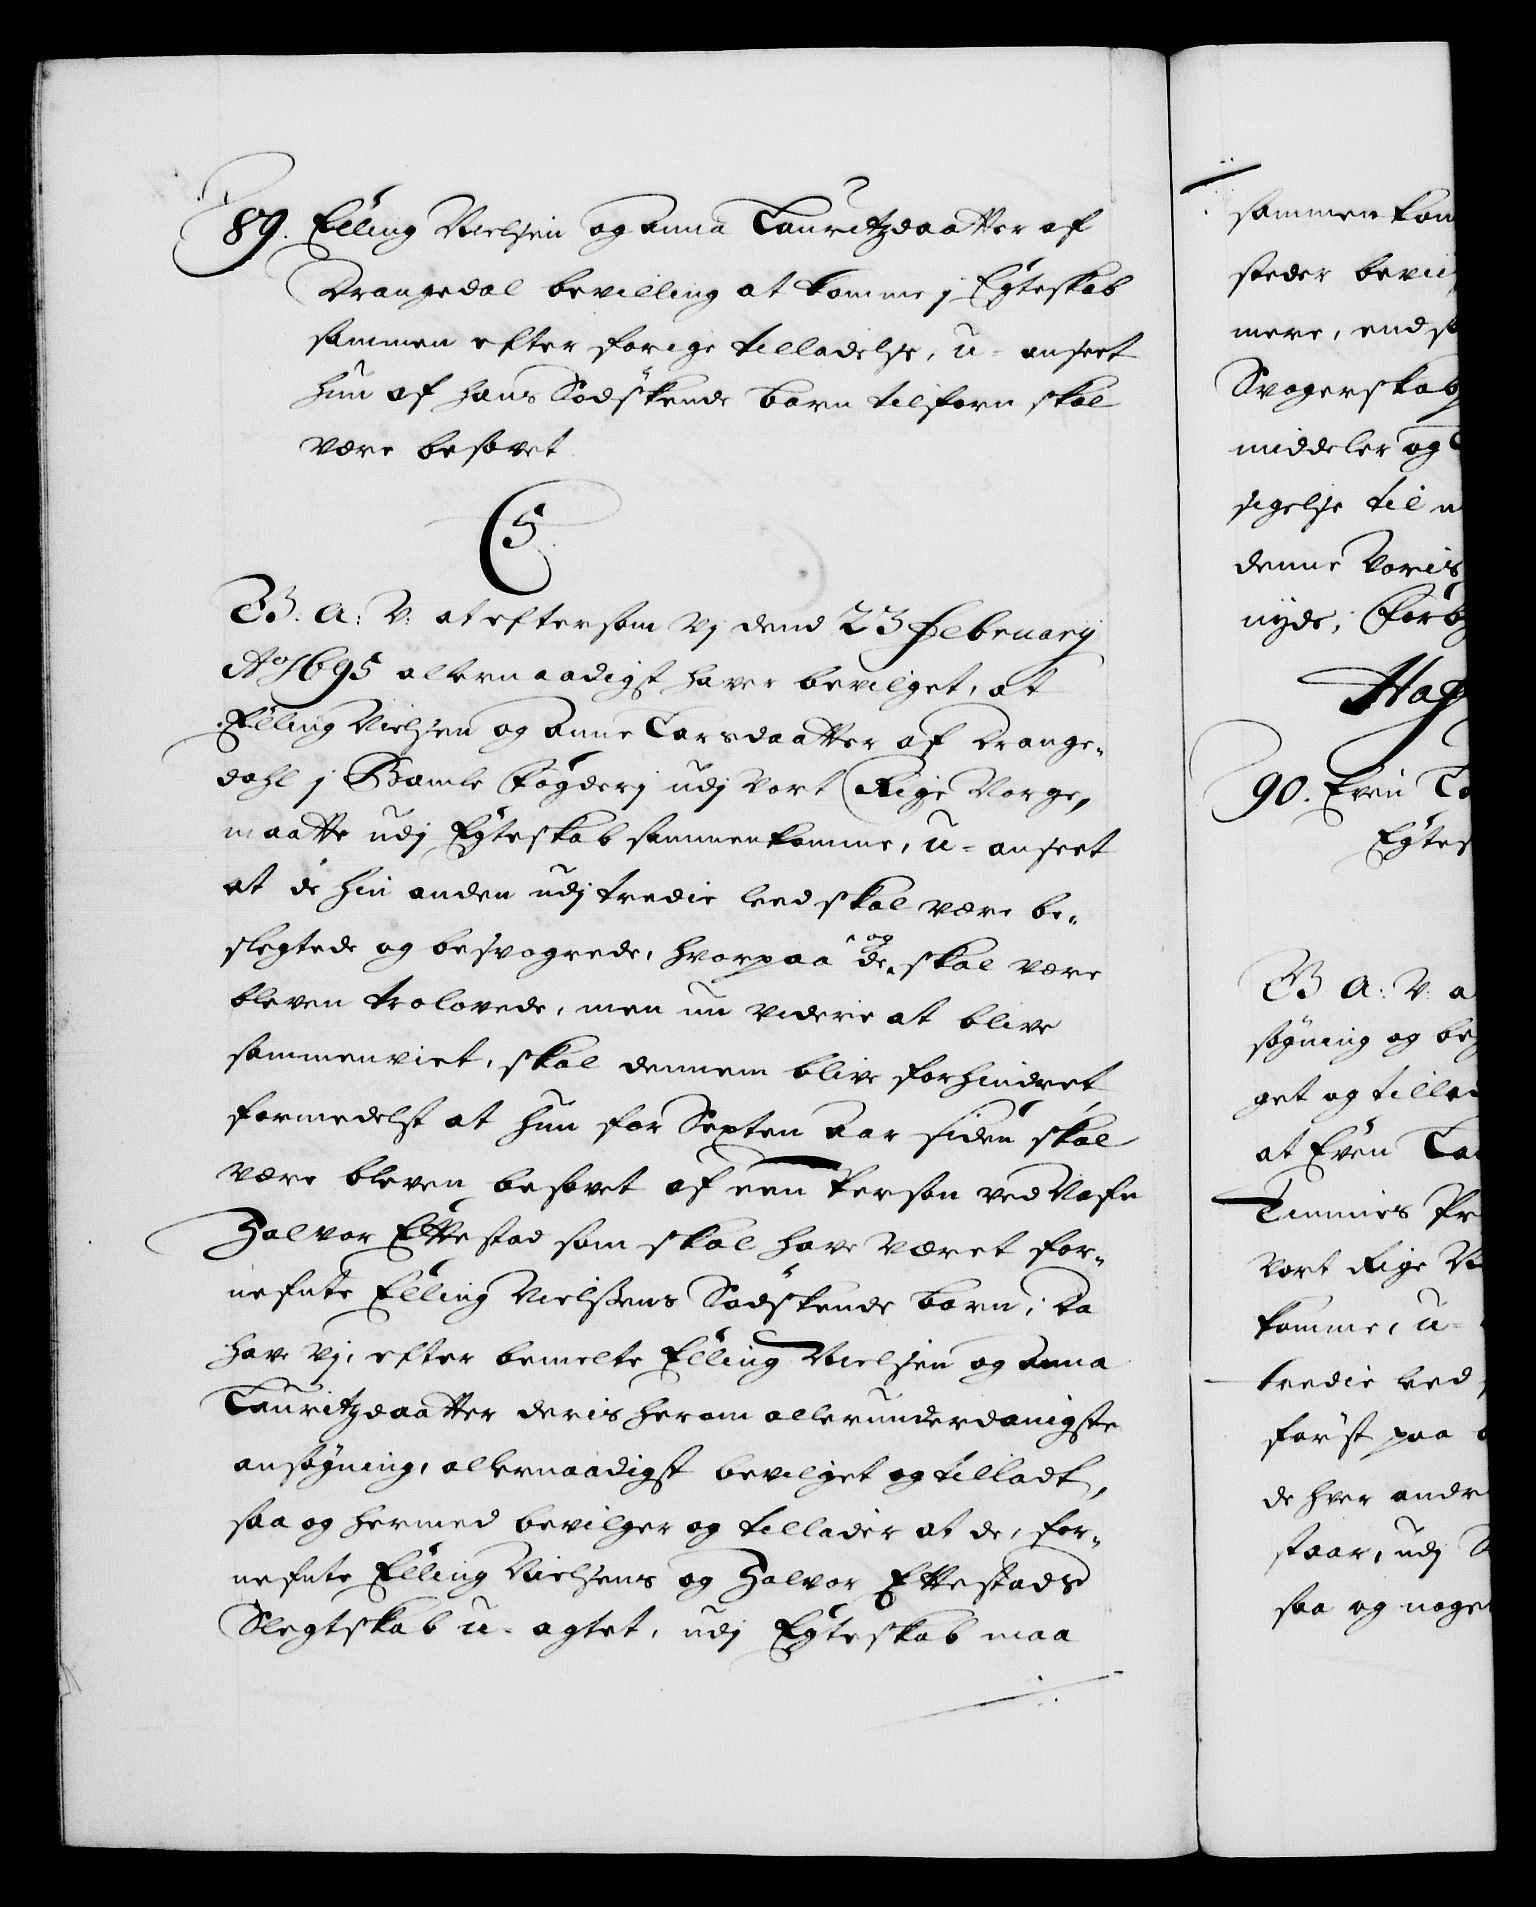 89. Elling Nielsen og Anna Lauritzdaatter af
Drangedal bevilling at komme j Egteskab
sammen efter forige tilladelse, u-anseet
hun af hans Sødskende barn tilforn skal
være besovet
C5.
G. A: V: at eftersom Vj dend 23 February
Ao 1695 allernaadigst haver bevilget, at
Elling Nielsen og Anne Larsdaatter af Drange-
dahl j Bamle Fogderj udj Vort Rige Norge,
maatte udj Egteskab sammenkomme, u-anseet
at de hin anden udj tredie leed skal være be-
slegtede og besvogrede, hvorpaa de og skal være
bleven trolovede, men nu videre at blive
sammenviet, skal dennem blive forhindret
formedelst at hun for Sexten Aar siden skal
være bleven besovet af een Person ved Nafn
Halvor Ettestad som skal have været for-
nefnte Elling Nielsens Sødskende barn; Da
have Vj, efter bemelte Elling Nielsen og Anna
Lauritzdaatter deris herom allerunderdanigste
ansøgning, allernaadigst bevilget og tilladt,
saa og hermed bevilger og tillader at de, for-
nefnte Elling Nielsens og Halvor Ettestads
Slegtskab u-agtet, udj Egteskab maa
sammenkom
steder bevil
mere, end s
Svogerskab
middeler og
sigelse til
denne Voris
nyde, Forb
Haf
90. Even
Egtes
G A: V: a
søgning og beg
get og tillad
at Even
Tinnies Pr
Vort Rige N
komme, u-
tredie leed
først paa
de hver andr
staar, udj S
saa og noget